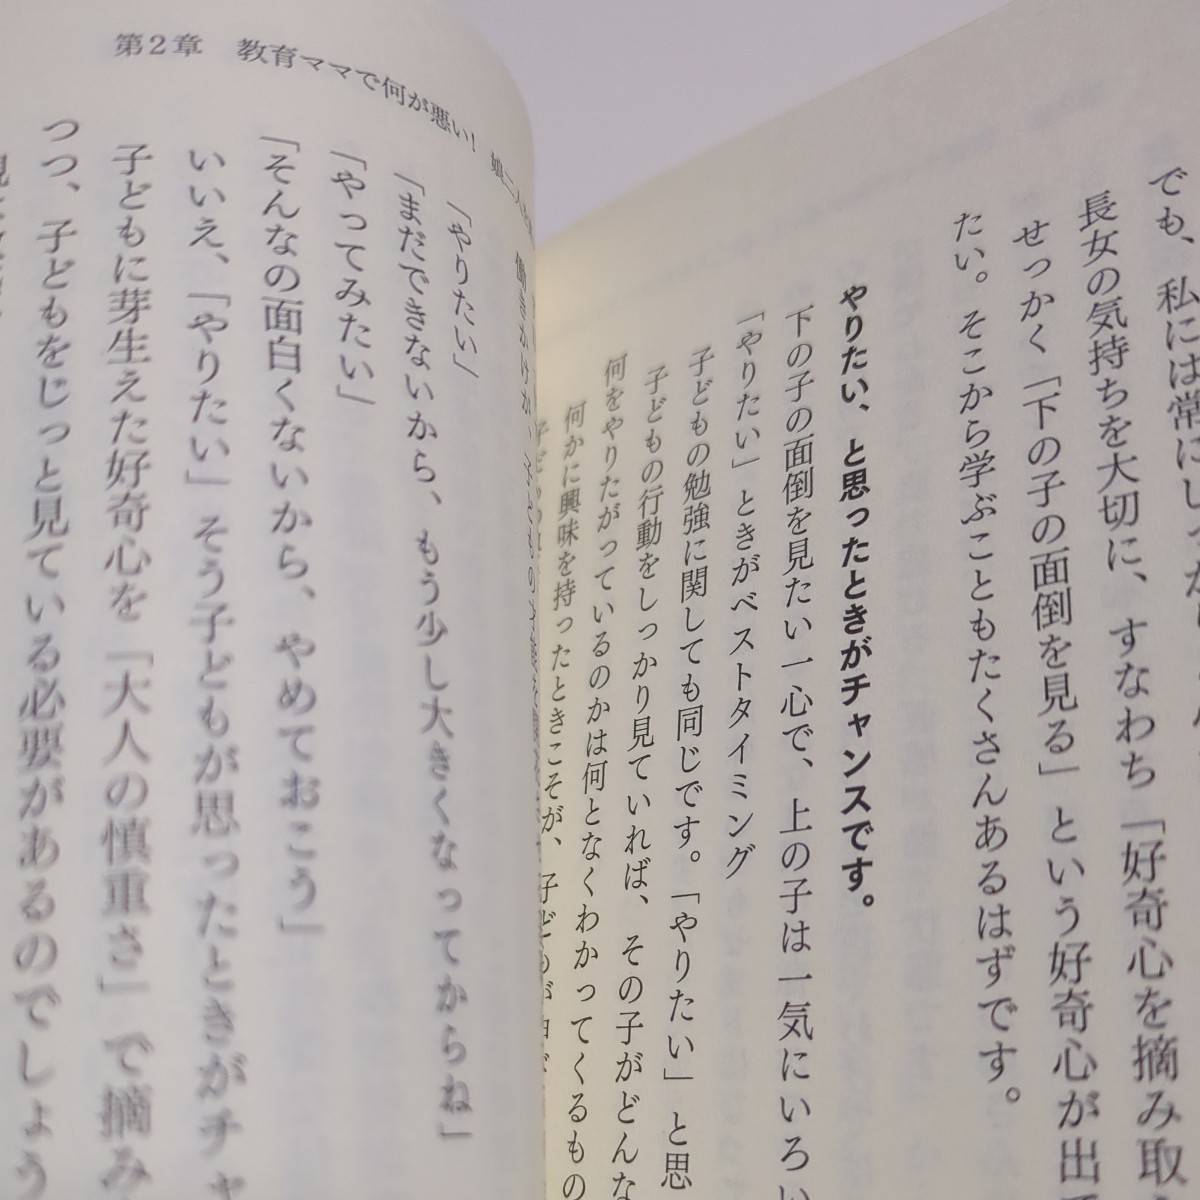 でも、私には常にしっかり
長女の気持ちを大切に、すなわち「好奇心を摘み取
せっかく「下の子の面倒を見る」という好奇心が出
たい。そこから学ぶこともたくさんあるはずです。
やりたい、と思ったときがチャンスです。
下の子の面倒を見たい一心で、上の子は一気にいろい
「やりたい」ときがベストタイミング
子どもの勉強に関しても同じです。「やりたい」と思
子どもの行動をしっかり見ていれば、その子がどんな
何をやりたがっているのかは何となくわかってくるもの
何かに興味を持ったときこそが、子どもが
第2章 教育ママで何が悪い! 娘二人を
働きかけが、子どもの
「やりたい」
「まだできないから、もう少し大きくなってからね」
「やってみたい」
「そんなの面白くないから、やめておこう」
いいえ、「やりたい」そう子どもが思ったときがチャ
子どもに芽生えた好奇心を「大人の慎重さ」で摘み
つつ、子どもをじっと見ている必要があるのでしょう